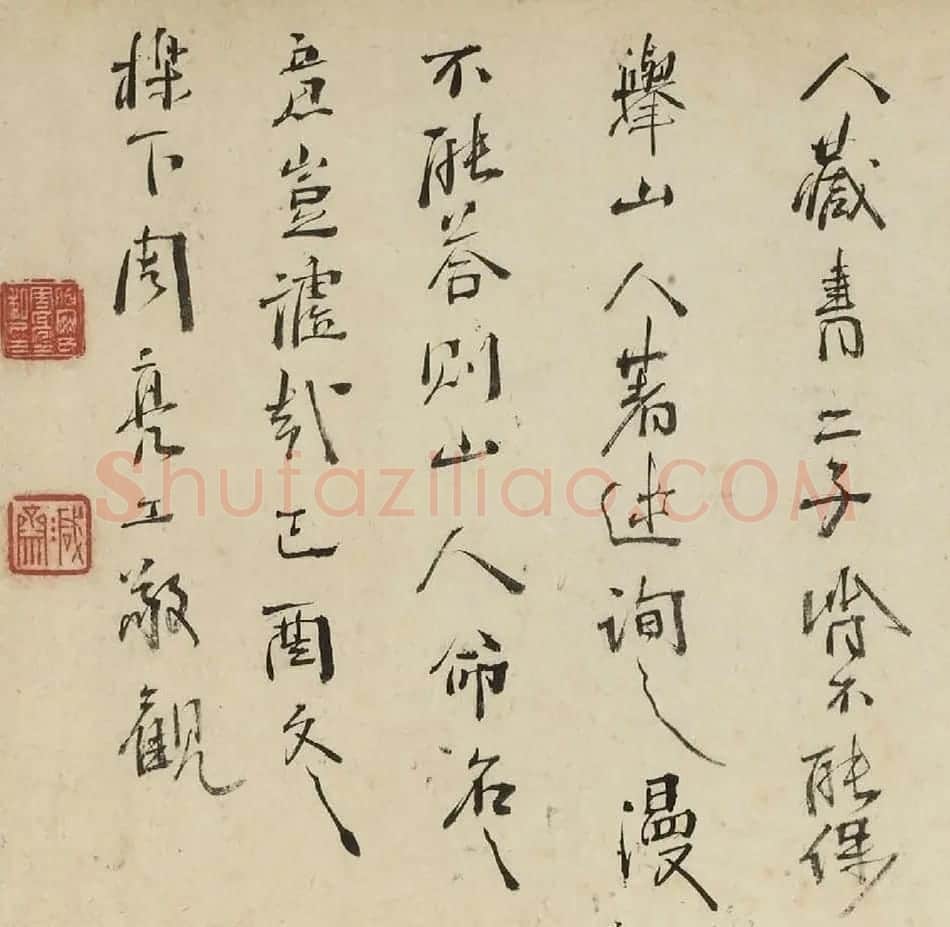 人藏書二子皆不能保
舉山人著述詢之漫
不能荅則山人命名之
意豈謔哉己酉冬
櫟下周亮工敬觀
Shufaziliao.COM